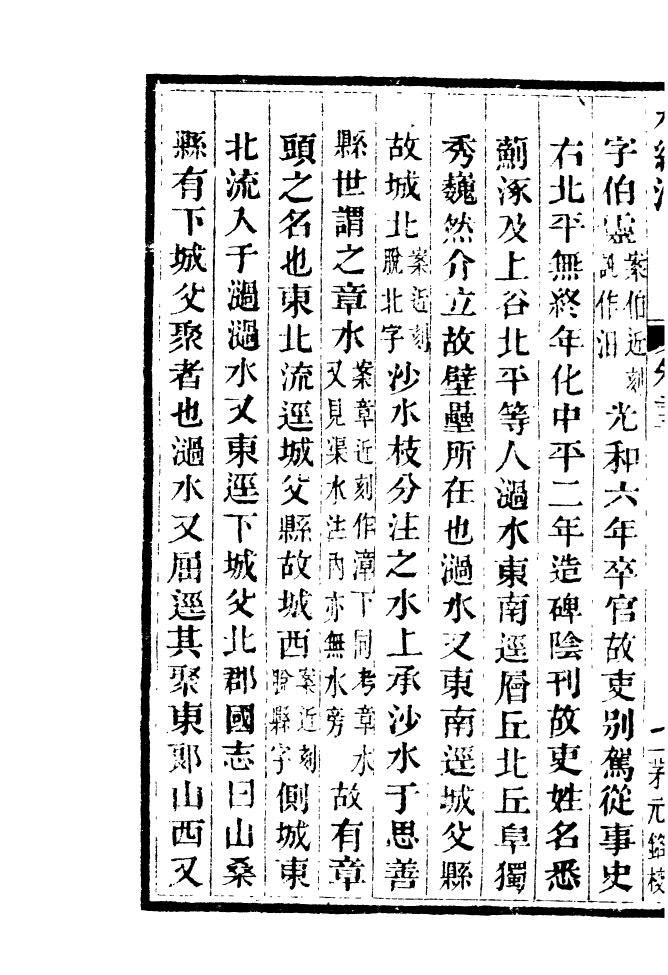 字伯靈案伯近刻訛作洎光和六年卒官故吏別駕從事史
右北平無終年化中平二年造碑陰刊故吏姓名悉
薊涿及上谷北平等人濄水東南逕層丘北丘阜獨
秀巍然介立故壁壘所在也濄水又東南逕城父縣
故城北案近刻脫北字沙水枝分注之水上承沙水于思善
縣世謂之章水案章近刻作漳下同考章水又見渠水注內亦無水旁故有章
頭之名也東北流逕城父縣故城西案近刻脫縣字側城東
北流入于濄濄水又東逕下城父北郡國志曰山桑
縣有下城父聚者也濄水又屈逕其聚東郎山西又